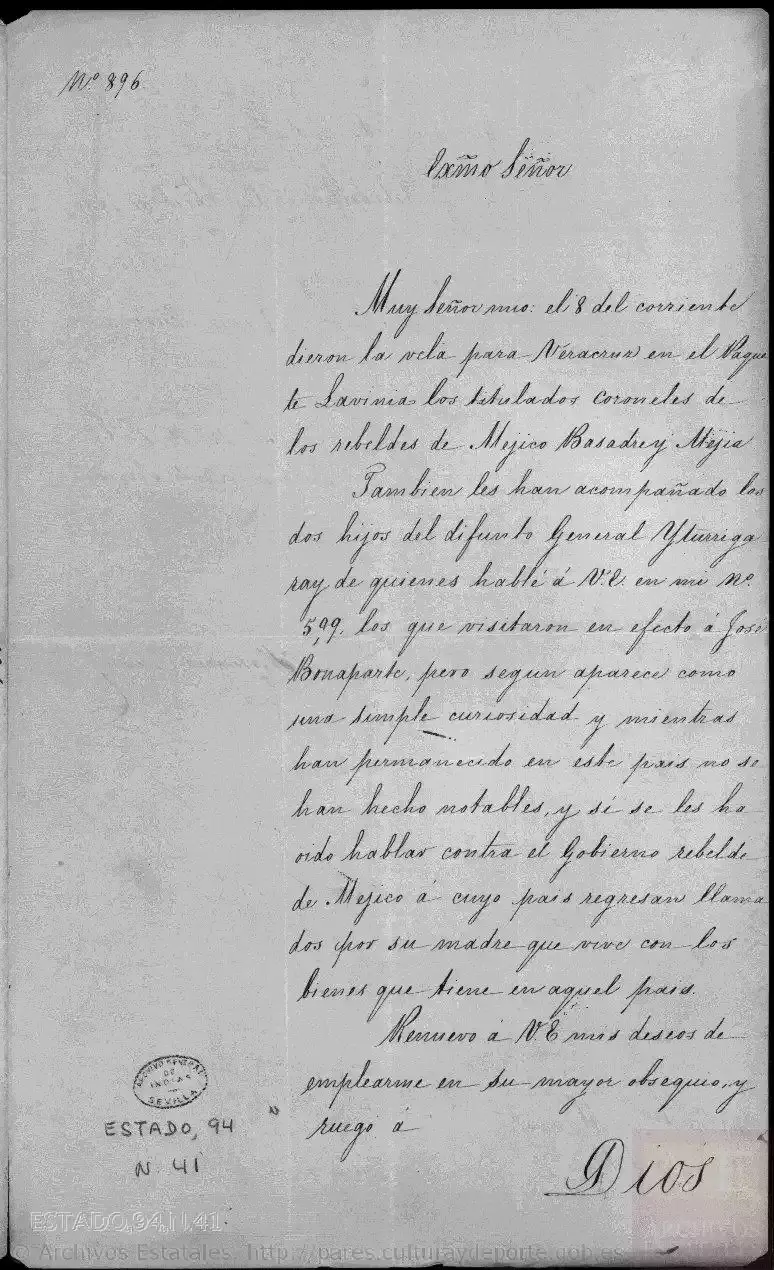 Nº 896
Exm̃o Señor
Muy Señor mio: el 8 del corriente
dieron la vela para Veracruz en el Paque
te Lavinia los titulados coroneles de
los rebeldes de Mejico Basadre y Mejia
Tambien les han acompañado los
dos hijos del difunto General Yturriga
ray de quienes hablé á V.E. en mi nº.
599. los que visitaron en efecto á José
Bonaparte, pero segun aparece como
una simple curiosidad y mientras
han permanecido en este pais no se
han hecho notables, y si se les ha
oido hablar contra el Gobierno rebelde
de Mejico á cuyo pais regresan llama
dos por su madre que vive con los
bienes que tiene en aquel pais.
Renuevo á V.E mis deseos de
emplearme en su mayor obsequio, y
ruego á
Dios
ARCHIVO GENERAL
DE
INDIAS
SEVILLA
ESTADO, 94
N. 41
ESTADO,94,N.41
© Archivos Estatales, http://pares.culturaydeporte.gob.es